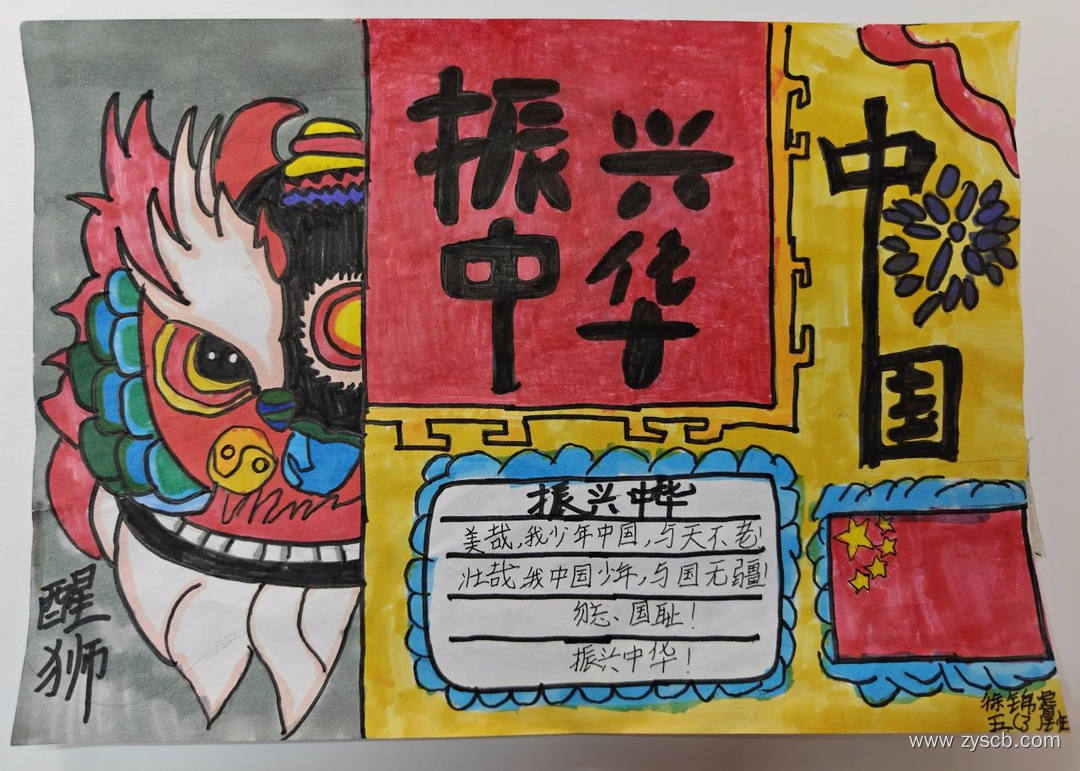 振兴
中华
中国
振兴中华
美哉,我少年中国,与天不老!
壮哉,我中国少年,与国无疆!
勿忘、国耻!
振兴中华!
醒狮
徐锦
www.zyscb.com